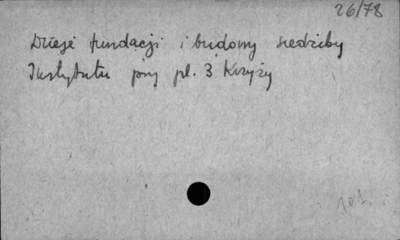 26/78
Dzieje fundacji i budowy siedziby
Instytutu przy pl. 3 Krzyży
101